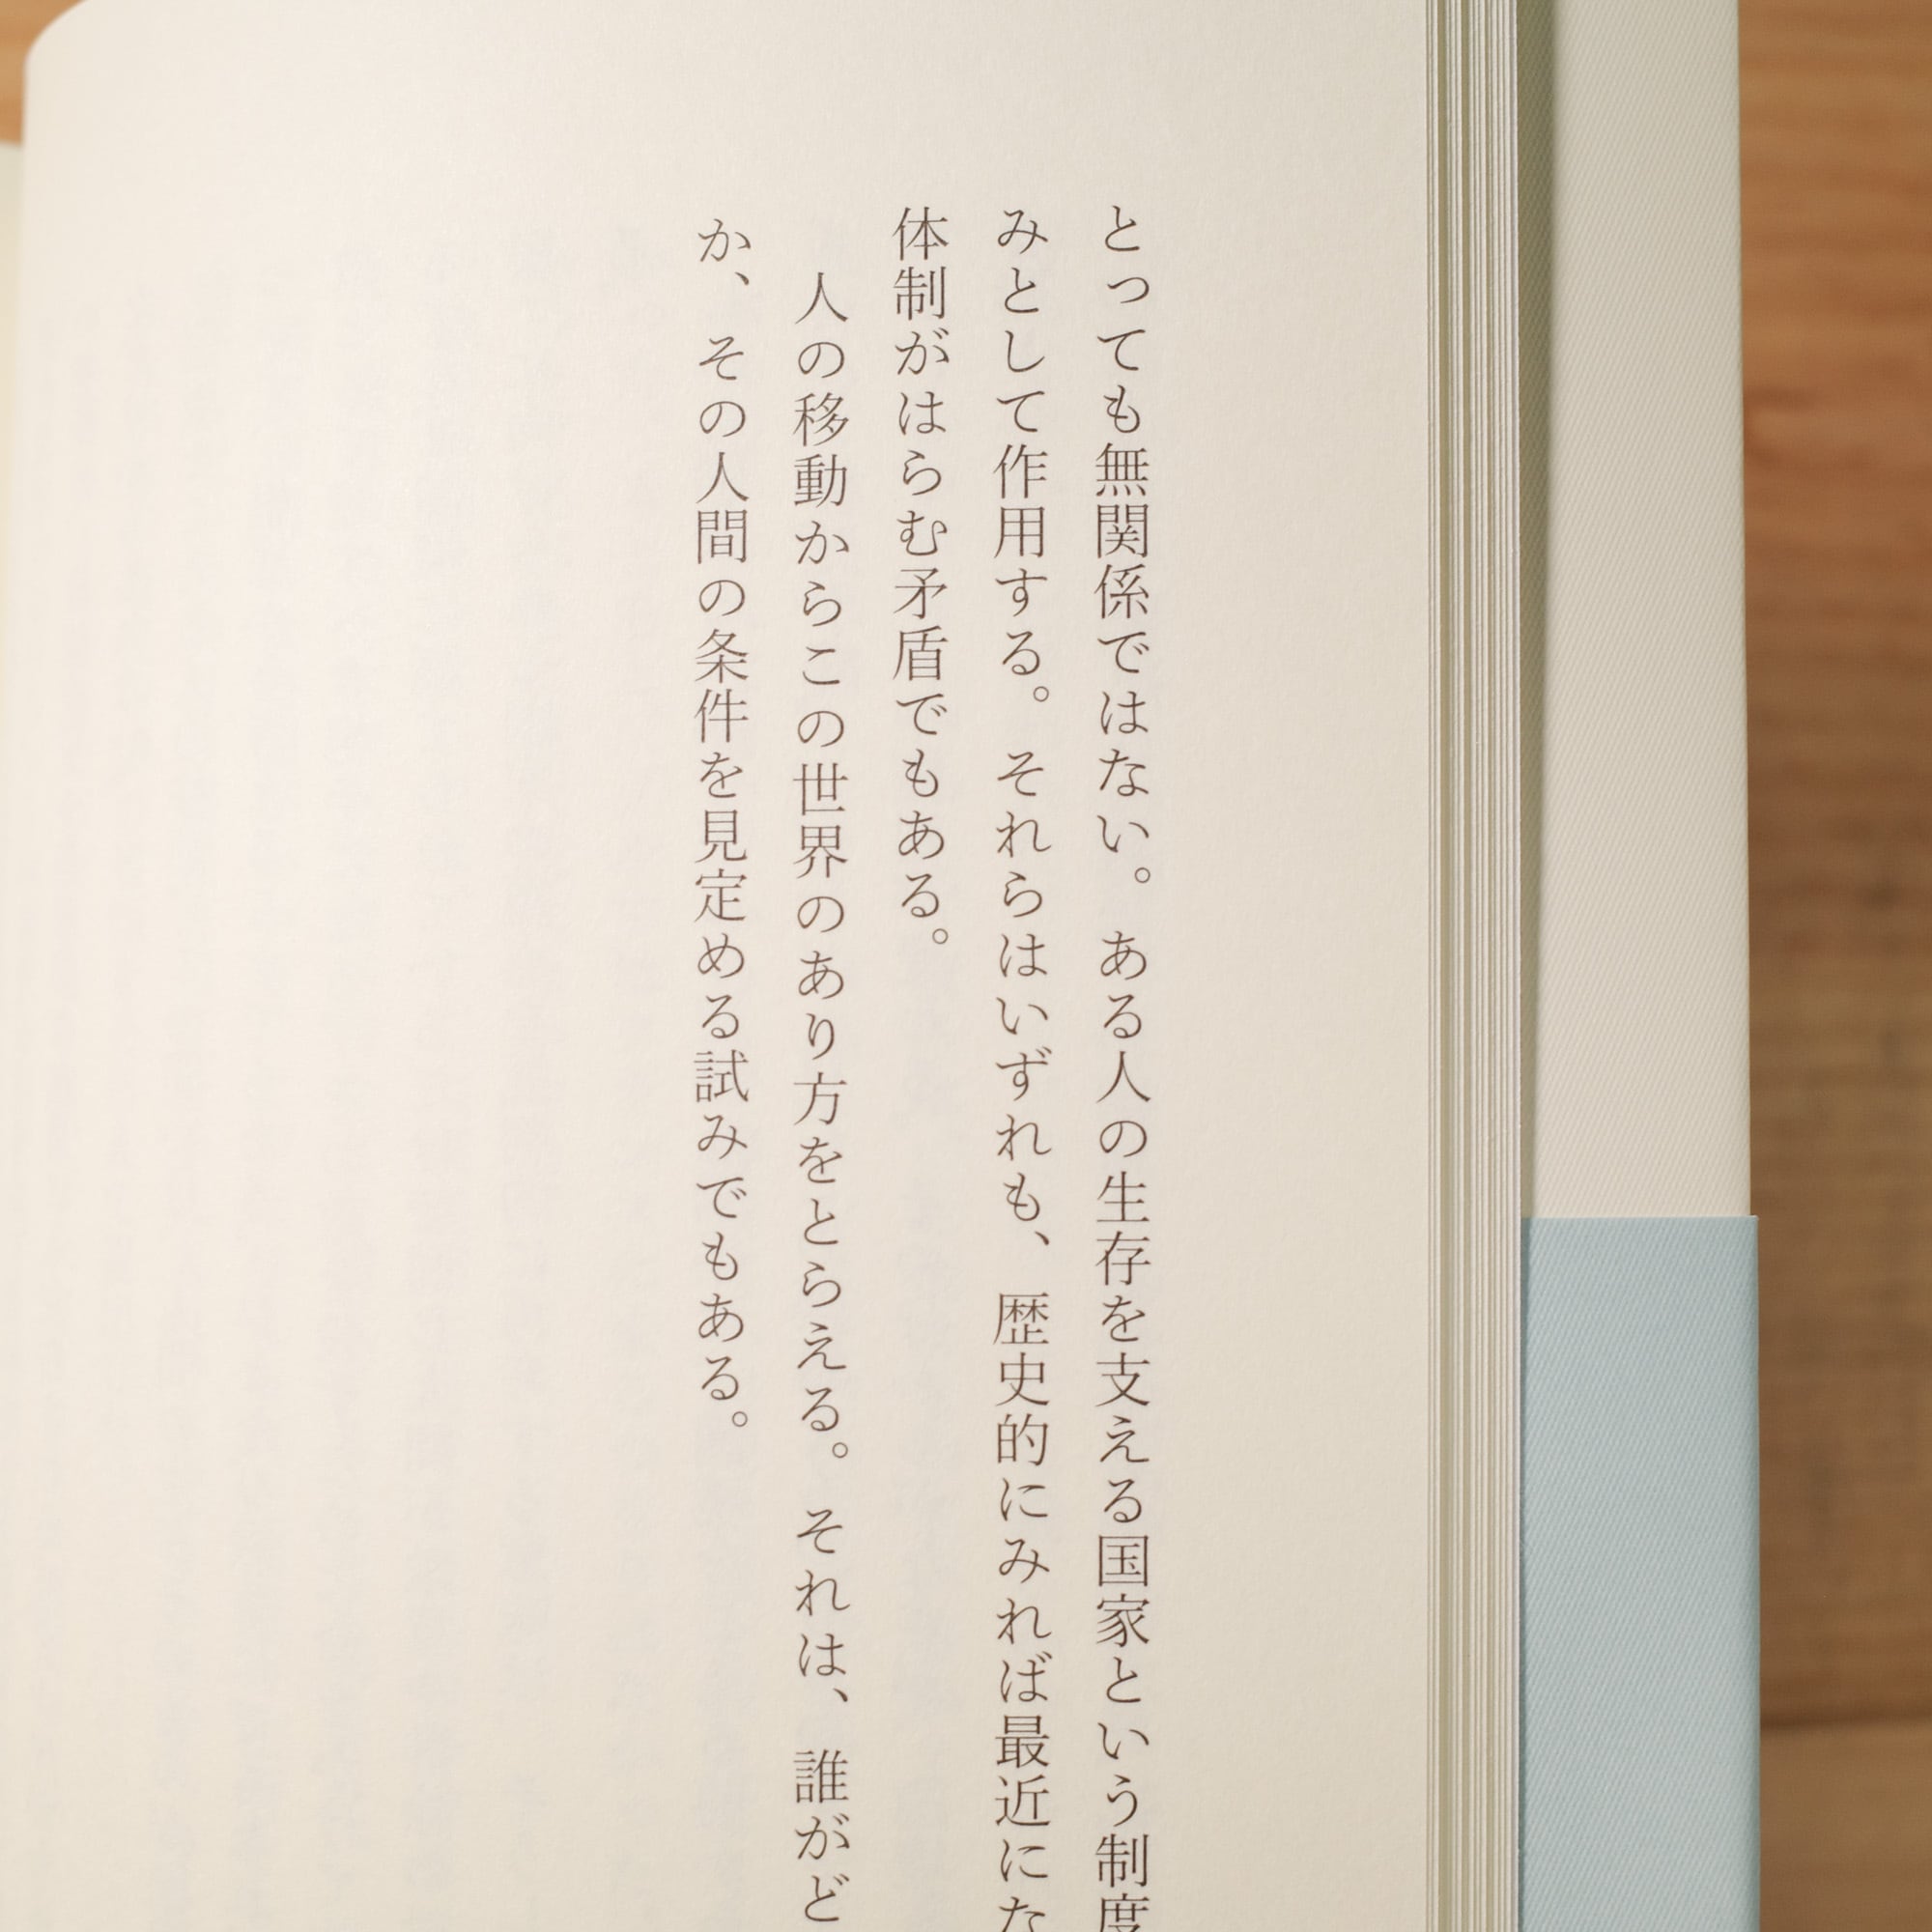 とっても無関係ではない。ある人の生存を支える国家という制度
みとして作用する。それらはいずれも、歴史的にみれば最近にな
体制がはらむ矛盾でもある。
人の移動からこの世界のあり方をとらえる。それは、誰がど
か、その人間の条件を見定める試みでもある。